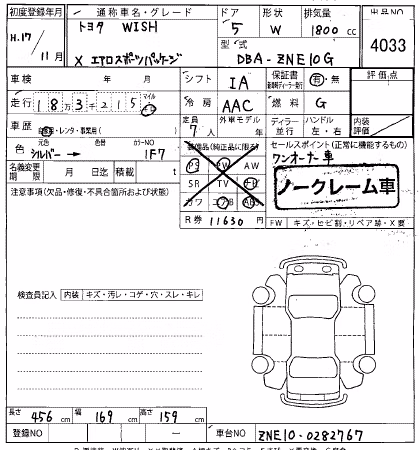 初度登録年月 通称車名・グレード ドア 形状 排気量 出品NO
H.17 トヨタ WISH 5 W 1800 cc 4033
11月 X エアロスポーツパッケージ 型式 DBA-ZNE10G
車検 年 月 シフト IA 保証書 有・無 評価点
走行 18万3千215 マイル 冷房 AAC 燃料 G
車歴 自家用・レンタ・事業用( ) 定員 7人 外車モデル 年 ディーラー 並行 ハンドル 左・右 内装評価
色 元色 シルバー → 色替 カラーNO 1F7 装備品(純正品に限る) セールスポイント(正常に機能するもの)
PS PW AW ワンオーナー車
名義変更期限 月 日迄 積載 t SR TV ノークレーム車
注意事項(欠品・修復・不具合箇所および状態) カワ
R券 11630 円 FW キズ・ヒビ割・リペア跡・X要
検査員記入 内装 キズ・汚レ・コゲ・穴・スレ・キレ
長さ 456 cm 幅 169 cm 高さ 159 cm
登録NO 車台NO ZNE10-0282767